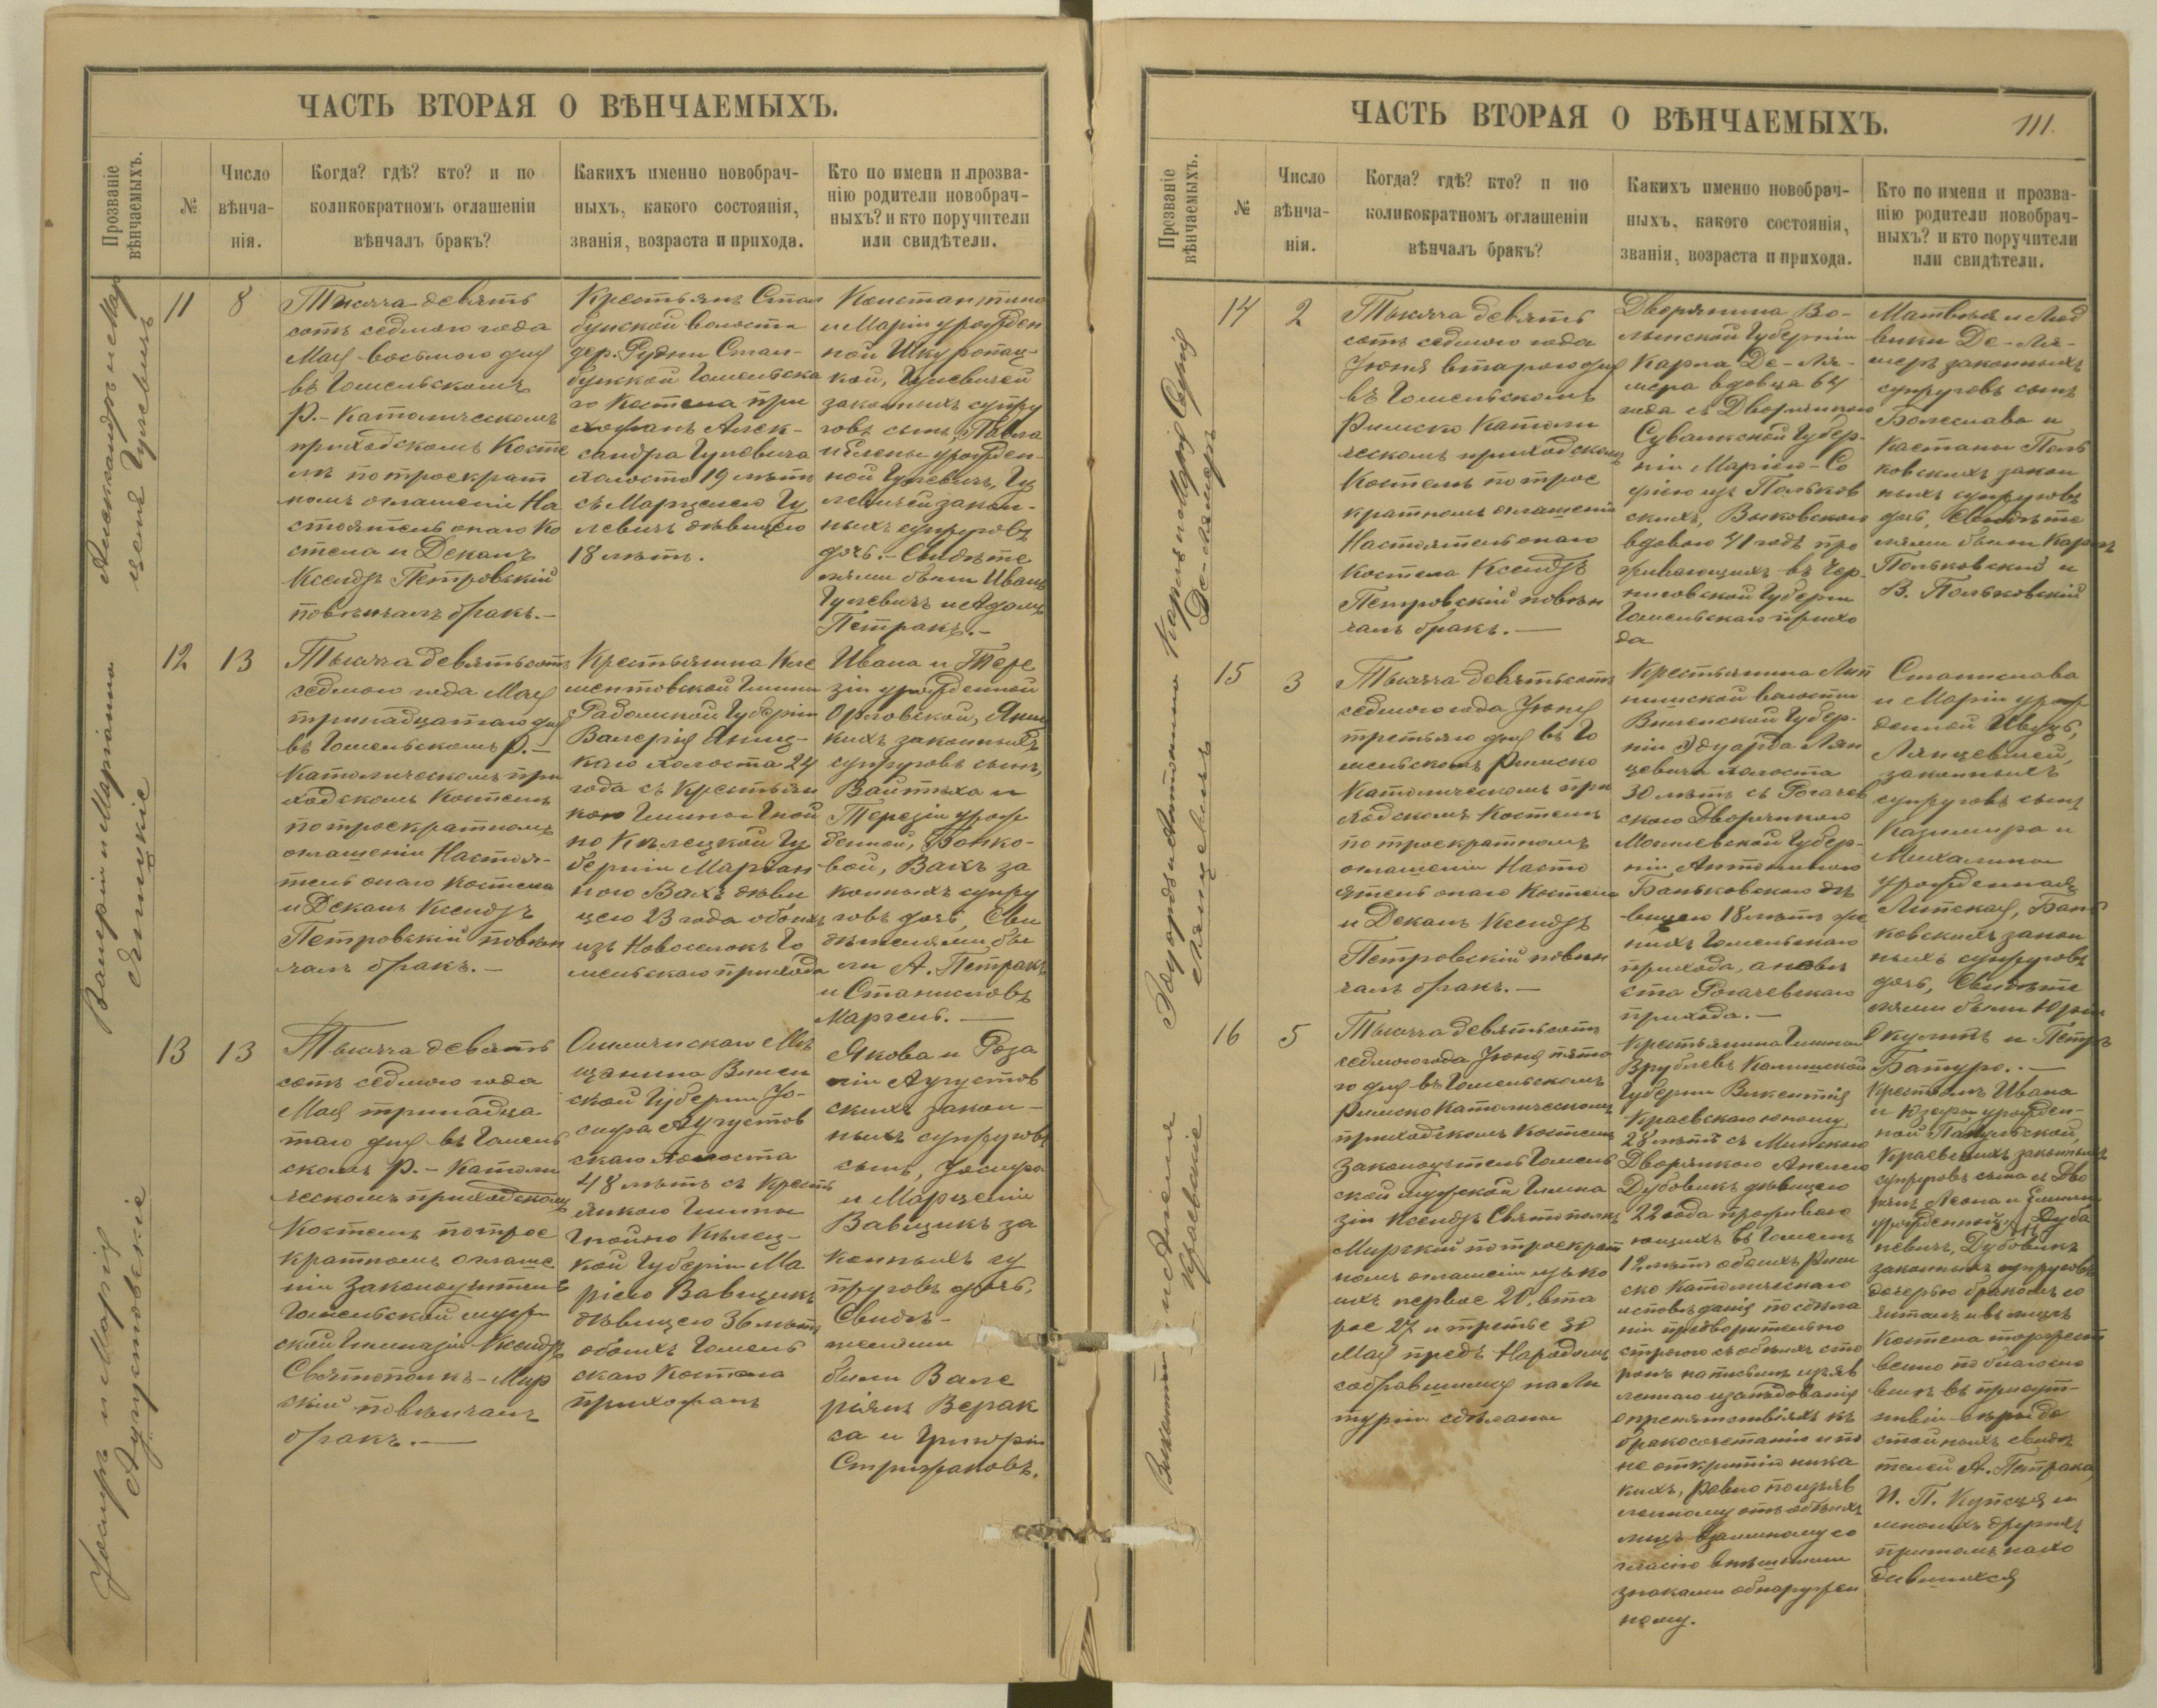 ЧАСТЬ ВТОРАЯ О ВѢНЧАЕМЫХЪ.
Прозваніе
вѣнчаемыхъ.
№
Число
вѣнча-
нія.
Когда? гдѣ? кто? и по
коликократномъ оглашеніи
вѣнчалъ бракъ?
Какихъ именно новобрач-
ныхъ, какого состоянія,
званія, возраста и прихода.
Кто по имени и прозва-
нію родители новобрач-
ныхъ? и кто поручители
или свидѣтели.
11
8
Тысяча девять
сотъ седмого года
Мая восьмого дня
въ Гомельскомъ
Р.-Католическомъ
приходскомъ Косте
лѣ по троекрат
номъ оглашеніи На
стоятель онаго Ко
стела и Деканъ
Ксендзъ Петровскій
повѣнчалъ бракъ.-
Крестьянъ Стол
бунской волости
дер. Рудни Стол-
бунской Гомельска
го Костела при
хожанъ Алек-
сандра Гулевича
холоста 19 лѣтъ
съ Марцелею Гу
левичъ дѣвицею
18 лѣтъ.
Константина
и Маріи урожден
ной Шкуропац-
кой, Гулевичей
законныхъ супру
говъ сынъ, Павла
и Елены урожден-
ной Гулевичъ, Гу
левичей закон-
ныхъ супруговъ
дочь.- Свидѣте
лями были Иванъ
Гулевичъ и Адамъ
Петракъ.-
12
13
Валеріи и Маріанна
Яницкіе
Тысяча девятьсотъ
седмого года Мая
тринадцатаго дня
въ Гомельскомъ Р.-
Католическомъ при
ходскомъ Костелѣ
по троекратномъ
оглашеніи Настоя-
тель онаго Костела
и Деканъ Ксендзъ
Петровскій повѣн
чалъ бракъ.-
Крестьянина Кле
ментовской Гмины
Радомской Губерніи
Валерія Яниц-
каго холоста 24
года съ Крестьян
кою Гмины Гной
но Кѣлецкой Гу
берніи Маріан
ною Вахъ дѣви
цею 23 года обоихъ
изъ Новоселокъ Го
мельскаго прихода
Ивана и Тере
зіи урожденной
Орловской, Яниц
кихъ законныхъ
супруговъ сынъ,
Войтѣха и
Терезіи урож
денной, Бонко-
вой, Вахъ за
конныхъ супру
говъ дочь, Сви
дѣтелями бы
ли А. Петракъ
и Станиславъ
Марчель.-
13
13
Іосифъ и Марія
Аугустовскіе
Тысяча девять
сотъ седмого года
Мая тринадца
таго дня въ Гомель
скомъ Р.-Католи
ческомъ приходскомъ
Костелѣ по трое
кратномъ оглаше
ніи Законоучитель
Гомельской муж
ской Гимназіи Ксендзъ
Святополкъ-Мир
скій повѣнчалъ
бракъ.-
Мѣ
щанина Вилен
ской Губерніи Іо-
сифа Аугустов
скаго холоста
48 лѣтъ съ Кресть
янкою Гмины
Гнойно Кѣлец-
кой Губерніи Ма
ріею Вавщикъ
дѣвицею 36 лѣтъ
обоихъ Гомель
скаго Костела
прихожанъ
Якова и Роза
ліи Аугустов
скихъ закон-
ныхъ супруговъ
сынъ, Іосифа
и Марцеліи
Вавщикъ за
конныхъ су
пруговъ дочь,
Свидѣ-
телями
были Вале
ріянъ Верак
са и Григорій
Стрижаковъ.
ЧАСТЬ ВТОРАЯ О ВѢНЧАЕМЫХЪ.
111.
Прозваніе
вѣнчаемыхъ.
№
Число
вѣнча-
нія.
Когда? гдѣ? кто? и по
коликократномъ оглашеніи
вѣнчалъ бракъ?
Какихъ именно новобрач-
ныхъ, какого состоянія,
званія, возраста и прихода.
Кто по имени и прозва-
нію родители новобрач-
ныхъ? и кто поручители
или свидѣтели.
14
2
Тысяча девять
сотъ седмого года
Іюня второго дня
въ Гомельскомъ
Римско Католи
ческомъ приходскомъ
Костелѣ по трое
кратномъ оглашеніи
Настоятель онаго
Костела Ксендзъ
Петровскій повѣн
чалъ бракъ.-
Дворянина Во-
лынской Губерніи
Карла Де-Ля-
мера вдовца 64
года съ Дворянкою
Сувалкской Губер-
ніи Маріею-Со
фіею изъ Польков
скихъ, Выковскою
вдовою 41 годъ про
живающихъ въ Чер-
ниговской Губерніи
Гомельскаго прихо
да
Матвѣя и Люд
вики Де-Ля-
меръ законныхъ
супруговъ сынъ
Болеслава и
Констаніи Поль
ковскихъ закон
ныхъ супруговъ
дочь, Свидѣте
лями были Карлъ
Польковскій и
В. Польковскій
15
3
Эдуардъ и Антонина
Лянцевичъ
Тысяча девятьсотъ
седмого года Іюня
третьяго дня въ Го
мельскомъ Римско
Католическомъ при
ходскомъ Костелѣ
по троекратномъ
оглашеніи Насто
ятель онаго Костела
и Деканъ Ксендзъ
Петровскій повѣн
чалъ бракъ.-
Крестьянина Лип
нишской волости
Виленской Губер-
ніи Эдуарда Лян
цевича холоста
30 лѣтъ съ Рогачев
скою Дворянкою
Могилевской Губер-
ніи Антониною
Баньковскою дѣ
вицею 18 лѣтъ же
нихъ Гомельскаго
прихода, а невѣ
ста Рогачевскаго
прихода.-
Станислава
и Маріи урож
денной Ивуць,
Лянцевичей,
законныхъ
супруговъ сынъ
Казимира и
Михалины
урожденная
Липская, Бань
ковскихъ закон
ныхъ супруговъ
дочь, Свидѣте
лями были Юрій
Окулитъ и Петръ
Батура.-
16
5
Краевскіе
Тысяча девятьсотъ
седмого года Іюня пята
го дня въ Гомельскомъ
Римско Католическомъ
приходскомъ Костелѣ
Законоучитель Гомель
ской мужской Гимна
зіи Ксендзъ Святополкъ
Мирскій по троекрат
номъ оглашеніи изъ ко
ихъ первое 20, вто
рое 27 и третье 30
Мая предъ Народомъ
собравшимся на Ли
тургіи сдѣланы
Крестьянина Гмины
Врублевъ Калишской
Губерніи Викентія
Краевскаго юношу
28 лѣтъ съ Минскою
Дворянкою Анелею
Дубовикъ дѣвицею
22 года прожива
ющихъ въ Гомелѣ
12 лѣтъ обоихъ Рим
ско Католическаго
исповѣданія по сдѣла
ніи предварительно
строгаго съ обѣихъ сто
ронъ на письмѣ изъяв
леннаго изслѣдованія
о препятствіяхъ къ
бракосочетанію и по
не открытіи ника
кихъ, равно по изъяв
ленному отъ обѣихъ
лицъ взаимному со
гласію внѣшними
знаками обнаружен
ному.
Крестьянъ Ивана
и Юзефы урожден-
ной
Краевскихъ законныхъ
супруговъ сына съ Дво
рянъ Леона и Эмиліи
урожденной
Дубовикъ
законныхъ супруговъ
дочерью бракомъ со
четалъ и въ лицѣ
Костела торжест
венно благосло
вилъ въ присут-
ствіи вѣры до
стойныхъ свидѣ
телей А. Петрака,
И. П. Купця и
многихъ другихъ
притомъ нахо
дившихся